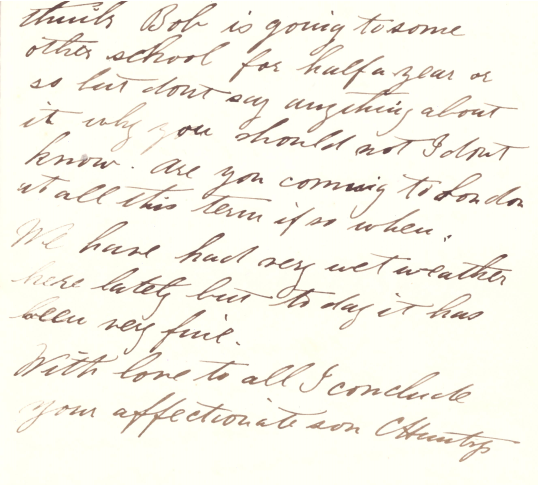 think Bob is going to some
other school for half a year or
so but dont say anything about
it why you should not I dont
know. Are you coming to London
at all this term if so when.
We have had very wet weather
here lately but to day it has
been very fine.
With love to all I conclude
your affectionate son